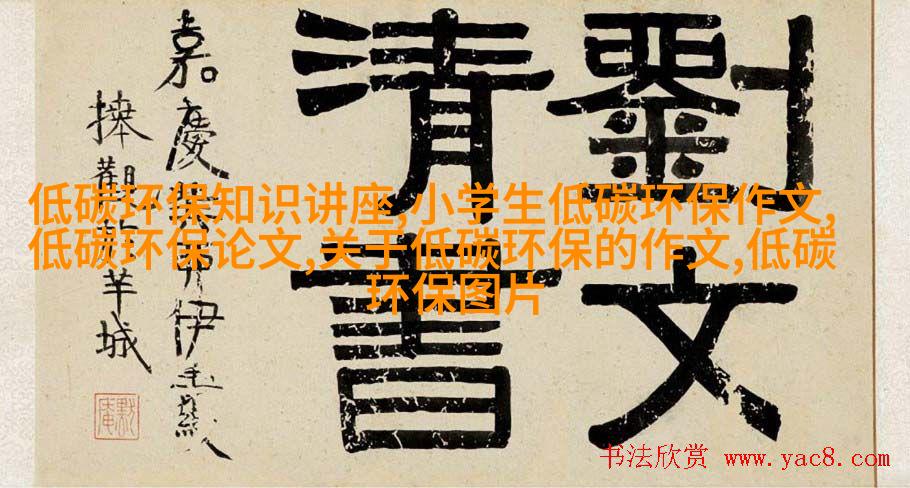 劉文
清書
嘉慶伊秉綬
捧觀羊城
低碳环保知识讲座,小学生低碳环保作文,
低碳环保论文,关于低碳环保的作文,低碳
环保图片
默庵
书法欣赏 www.yac8.com